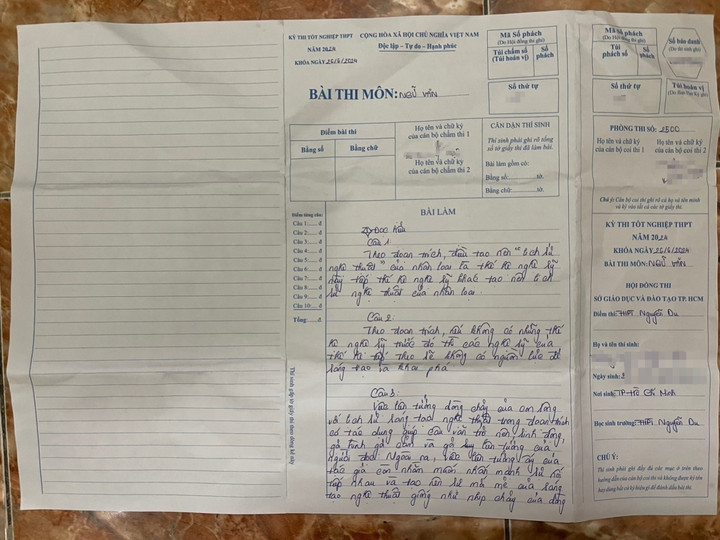 KỲ THI TỐT NGHIỆP THPT
NĂM 2024
KHÓA NGÀY 26/6/2024
CỘNG HÒA XÃ HỘI CHỦ NGHĨA VIỆT NAM
Độc lập – Tự do – Hạnh phúc
BÀI THI MÔN: NGỮ VĂN
Mã Số phách
(Do Hội đồng thi ghi)
Túi chấm số
(Túi hoán vị)
Số phách
Số thứ tự
Điểm bài thi
Bằng số
Bằng chữ
Họ tên và chữ ký
của cán bộ chấm thi 1
Họ tên và chữ ký
của cán bộ chấm thi 2
CĂN DẶN THÍ SINH
Thí sinh phải ghi rõ tổng
số tờ giấy thi đã làm bài.
Bài làm gồm có:
Bằng số: tờ.
Bằng chữ: tờ.
Điểm từng câu:
Câu 1: đ
Câu 2: đ
Câu 3: đ
Câu 4: đ
Câu 5: đ
Câu 6: đ
Câu 7: đ
Câu 8: đ
Câu 9: đ
Câu 10: đ
Tổng: đ
BÀI LÀM
I/ Đọc hiểu
Câu 1:
Theo đoạn trích, điều tạo nên "lịch sử
nghệ thuật" của nhân loại là thế hệ nghệ sỹ
này tiếp thế hệ nghệ sỹ khác tạo nên lịch
sử nghệ thuật của nhân loại.
Câu 2:
Theo đoạn trích, nếu không có những thế
hệ nghệ sỹ trước đó thì các nghệ sỹ của
thế hệ tiếp theo sẽ không có nguồn lực để
sáng tạo và khai phá
Câu 3:
Việc liên tưởng dòng chảy của con sông
với lịch sử sáng tạo nghệ thuật trong đoạn trích
có tác dụng giúp câu văn trở nên sinh động,
gợi hình gợi cảm và gợi sự liên tưởng của
người đọc. Ngoài ra, việc liên tưởng ấy của
tác giả còn nhằm nhấn mạnh sự nối
tiếp nhau và tạo nên sự mới mẻ của sáng
tạo nghệ thuật giống như nhịp chảy của dòng
Mã Số phách
(Do Hội đồng thi ghi)
Túi phách số
Số phách
Số báo danh
(Do thí sinh ghi)
Số thứ tự
Túi hoán vị
PHÒNG THI SỐ: 2500
Họ tên và chữ ký
của cán bộ coi thi 1
Họ tên và chữ ký
của cán bộ coi thi 2
Chú ý: Cán bộ coi thi ghi rõ cả họ và tên mình
và ký vào tất cả các tờ giấy thi.
KỲ THI TỐT NGHIỆP THPT
NĂM 2024
KHÓA NGÀY 26/6/2024
BÀI THI MÔN: NGỮ VĂN
HỘI ĐỒNG THI
SỞ GIÁO DỤC VÀ ĐÀO TẠO TP. HCM
Điểm thi: THPT Nguyễn Du
Họ và tên thí sinh:
Ngày sinh:
Nơi sinh: TP-Hồ Chí Minh
Học sinh trường: THPT Nguyễn Du
CHÚ Ý:
Thí sinh phải ghi đầy đủ các mục ở trên theo
hướng dẫn của cán bộ coi thi và không được ký tên
hay dùng bất cứ ký hiệu gì để đánh dấu bài thi.